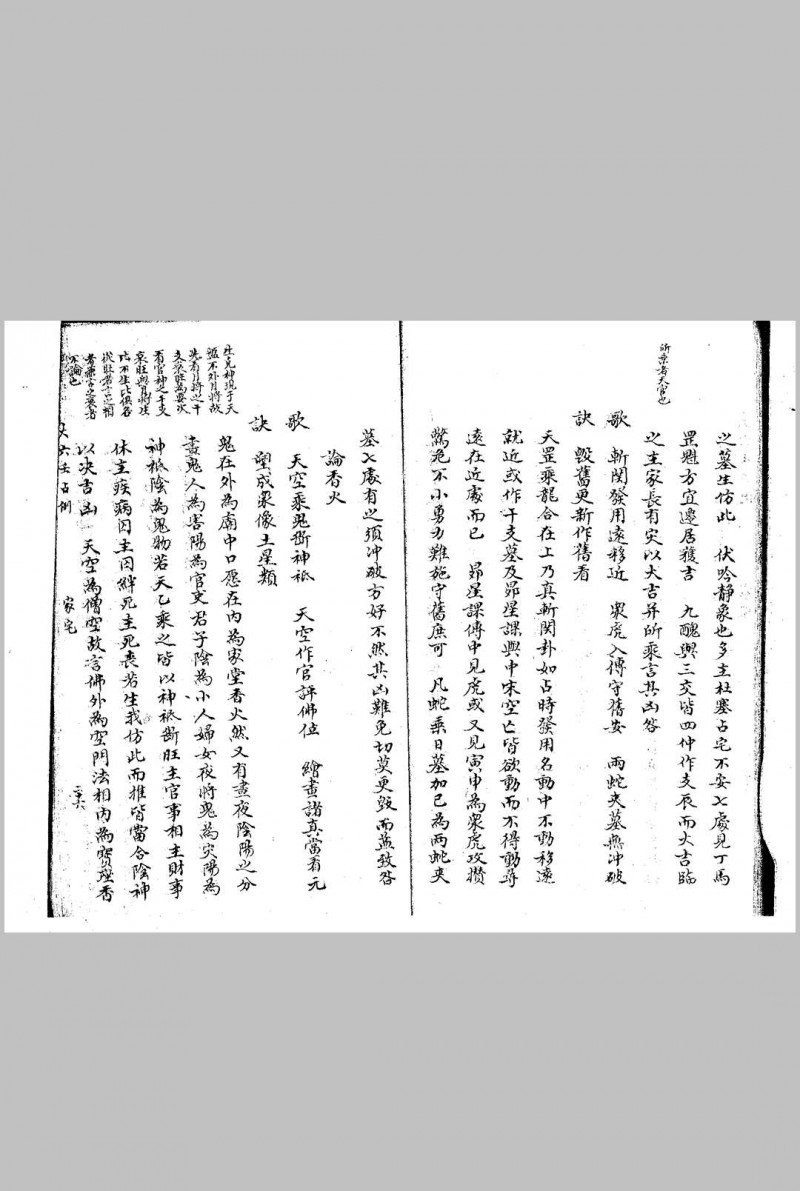 所乘者天官也
之墓生仿此　伏吟静象也多主杜塞占宅不安七處見丁馬
罡魁方宜遷居獲吉　九醜與三交皆四仲作支辰而大吉臨
之主家長有災以大吉并所乘言其凶咎
歌　斬関發用遠移近　衆虎入傳守舊安　兩蛇夾墓無冲破
訣　毁舊更新作舊看
天罡乘龍合在上乃真斬関卦如占時發用名動中不動移遠
就近或作干支墓及昴星課與中末空亡皆欲動而不得動尋
遠在近處而已　昴星課傳中見虎或又見寅申為衆虎攻攢
驚危不小勇力難施守舊庶可　凡蛇乘日墓加巳為兩蛇夾
墓七處有之須沖破方好不然其凶難免切莫更毁而益致咎
論香火
歌　天空乘鬼斷神祗　天空作官評佛位　繪畫諸真當看元
訣　塑成衆像土星類
鬼在外為廟中口愿在内為家堂香火然又有晝夜陰陽之分
晝鬼人為害陽為官吏君子陰為小人婦女夜將鬼為灾陽為
神祗陰為鬼物若天乙乘之皆以神祗斷旺主官事相主財事
休主疾病囚主囚絆死主死丧若生我仿此而推皆當合陰神
以决吉凶　天空為僧空故言佛外為空門法相内為寶座香
生克神現于天
盤不外月將故
先看月將之干
支衰旺為要次
看官神之干支
衰旺與月將生
比不生比俱各
從旺者言之相
者兼言之衰者
不論也
大六壬占例　家宅　二十六